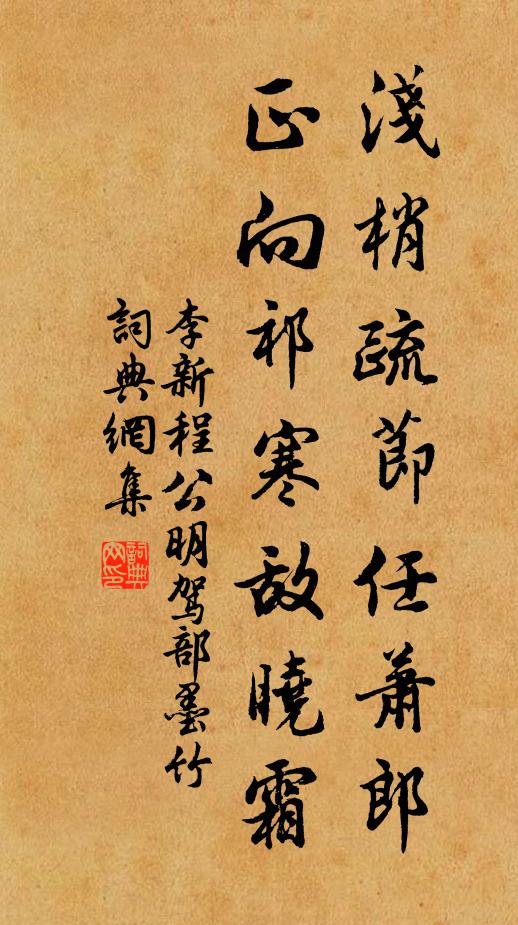 淺梢疏節任蕭郎
正向祁寒敵曉霜
李新程公明駕部墨竹
詞典網集
詞典网印